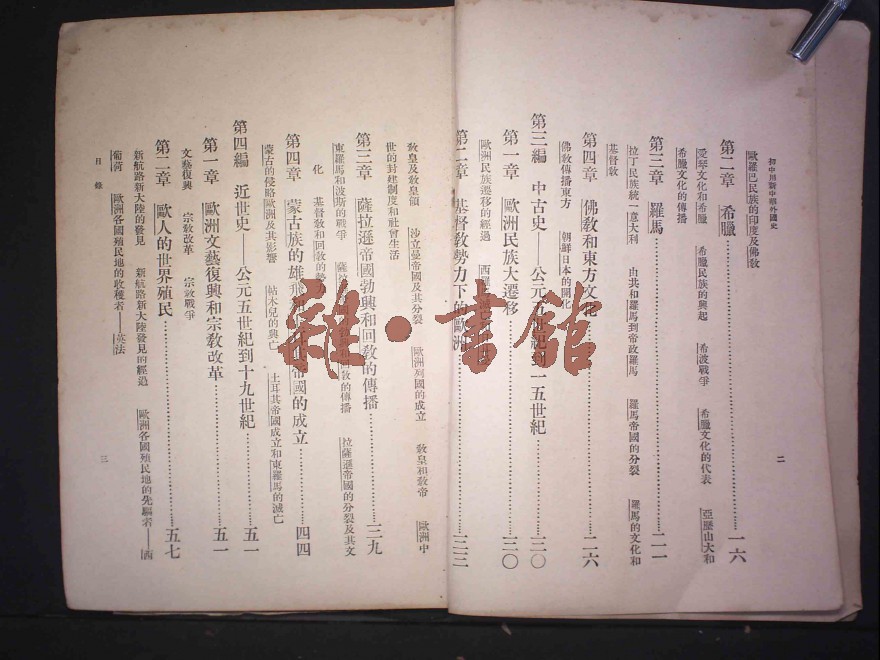 初中用新中華外國史
二
歐羅巴民族的印度及佛教
第二章 希臘 一六
愛琴文化和希臘 希臘民族的興起 希波戰爭 希臘文化的代表 亞歷山大和
希臘文化的傳播
第三章 羅馬 二一
拉丁民族統一意大利 由共和羅馬到帝政羅馬 羅馬帝國的分裂 羅馬的文化和
基督教
第四章 佛教和東方文化 二六
佛教傳播東方 朝鮮日本的開化
第三編 中古史——公元五世紀到一五世紀 三〇
第一章 歐洲民族大遷移 三〇
歐洲民族遷移的經過
第二章 基督教勢力下的歐洲 三三
教皇及教皇領 沙立曼帝國及其分裂 歐洲列國的成立 教皇和教帝 歐洲中
世的封建制度和社會生活
第三章 薩拉遜帝國勃興和回教的傳播 三九
東羅馬和波斯的戰爭 的傳播 拉薩遜帝國的分裂及其文
化 基督教和回教的勢力
第四章 蒙古族的雄飛 帝國的成立 四四
蒙古的侵略歐洲及其影響 帖木兒的興亡 土耳其帝國成立和東羅馬的滅亡
第四編 近世史——公元五世紀到十九世紀 五一
第一章 歐洲文藝復興和宗教改革 五一
文藝復興 宗教改革 宗教戰爭
第二章 歐人的世界殖民 五七
新航路新大陸的發見 新航路新大陸發見的經過 歐洲各國殖民地的先驅者——西
葡荷 歐洲各國殖民地的收穫者——英法
目錄
三
雜·書館